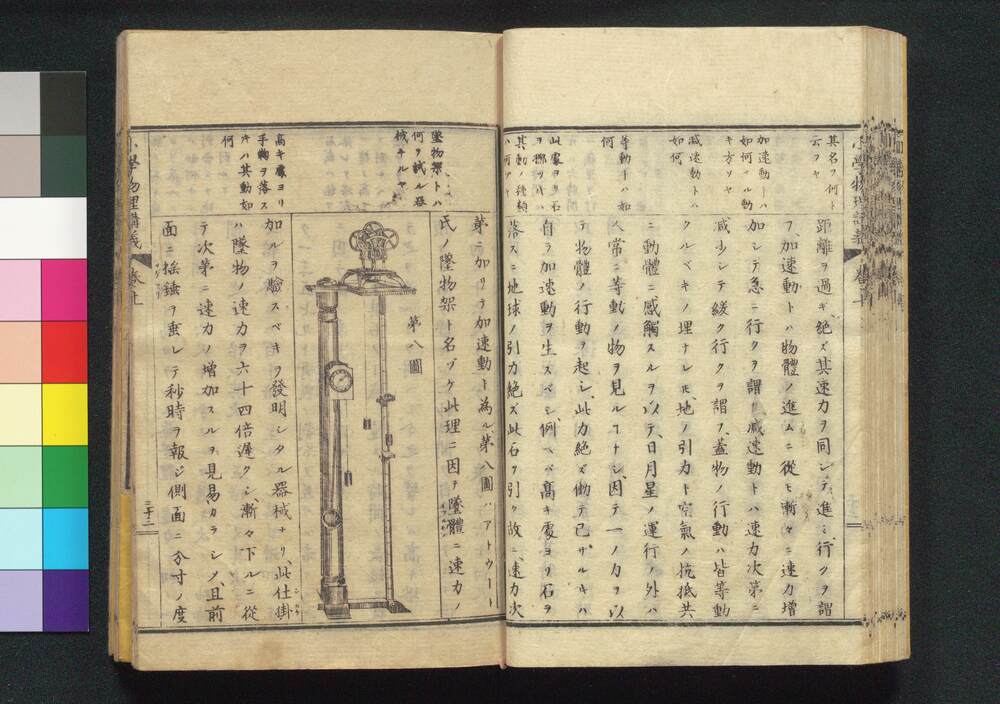 其名ヲ何ト
云フヤ
加速動トハ
如何ナル動
キ方ゾヤ
減速動トハ
如何
等動トハ如
何
此處ヨリ石
ヲ擲ツハ
其動ノ種類
ハ何ゾヤ
距離ヲ過ギ絶ズ其速力ヲ同シテ進ミ行クヲ謂
フ、加速動トハ物體ノ進ムニ從ヒ漸々ニ速力増
加シテ急ニ行クヲ謂ヒ減速動トハ速力次第ニ
減少シテ緩ク行クヲ謂フ、蓋物ノ行動ハ皆等動
クルベキノ理ナレ𪜈、地ノ引力ト空氣ノ抗抵共
ニ動體ニ感觸スルヲ以テ、日月星ノ運行ノ外ハ
人常ニ等動ノ物ヲ見ルヿナシ、因テ一ノ力ヲ以
テ物體ノ行動ヲ起シ、此力絶ズ働テ已ザルキハ
自ラ加速動ヲ生スベシ、例ヘバ高キ處ヨリ石ヲ
落スニ地球ノ引力絶ズ此石ヲ引ク故ニ、速力次
小學物理講義
卷十
墜物架トハ
何ヲ試ル器
械ナルヤ
高キ處ヨリ
手鞠ヲ落ス
キハ其動如
何
第ニ加リテ加速動ト為ル、第八圖ハアトウート
氏ノ墜物架ト名ヅケ此理ニ因テ墜體ニ速力ノ
第八圖
加ルヲ驗スベキヲ發明シタル器械ナリ、此仕掛
ハ墜物ノ速力ヲ六十四倍遲クシ、漸々下ルニ從
テ次第ニ速力ノ増加スルヲ見易カラシメ、且前
面ニ揺錘ヲ垂レテ秒時ヲ報ジ側面ニ分寸ノ度
小學物理講義
卷十
二十二